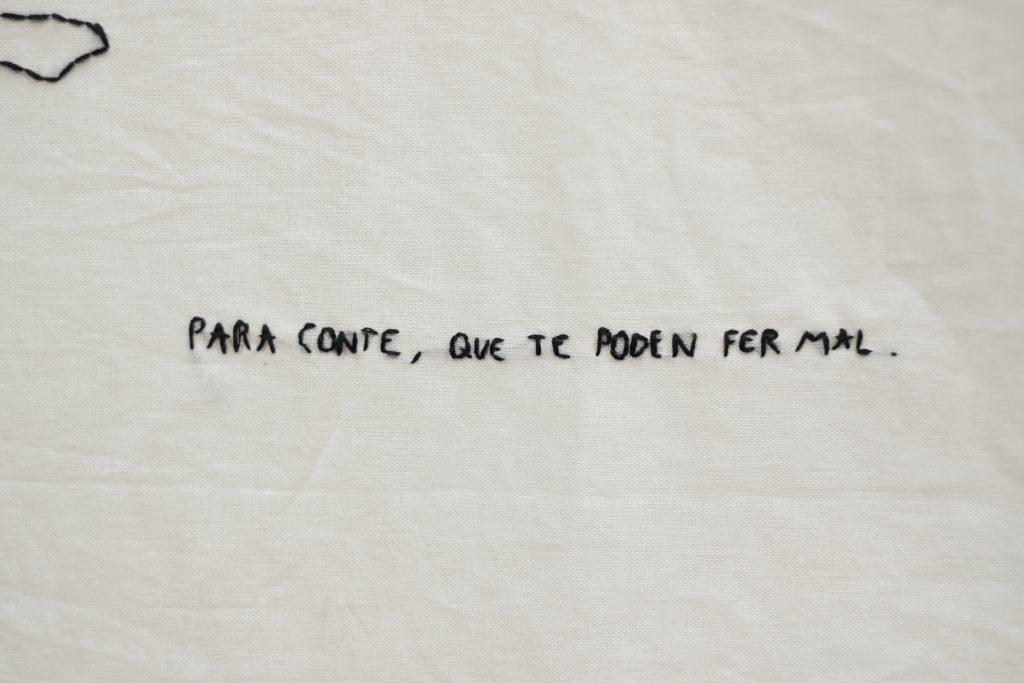 PARA CONTE, QUE TE PODEN FER MAL.